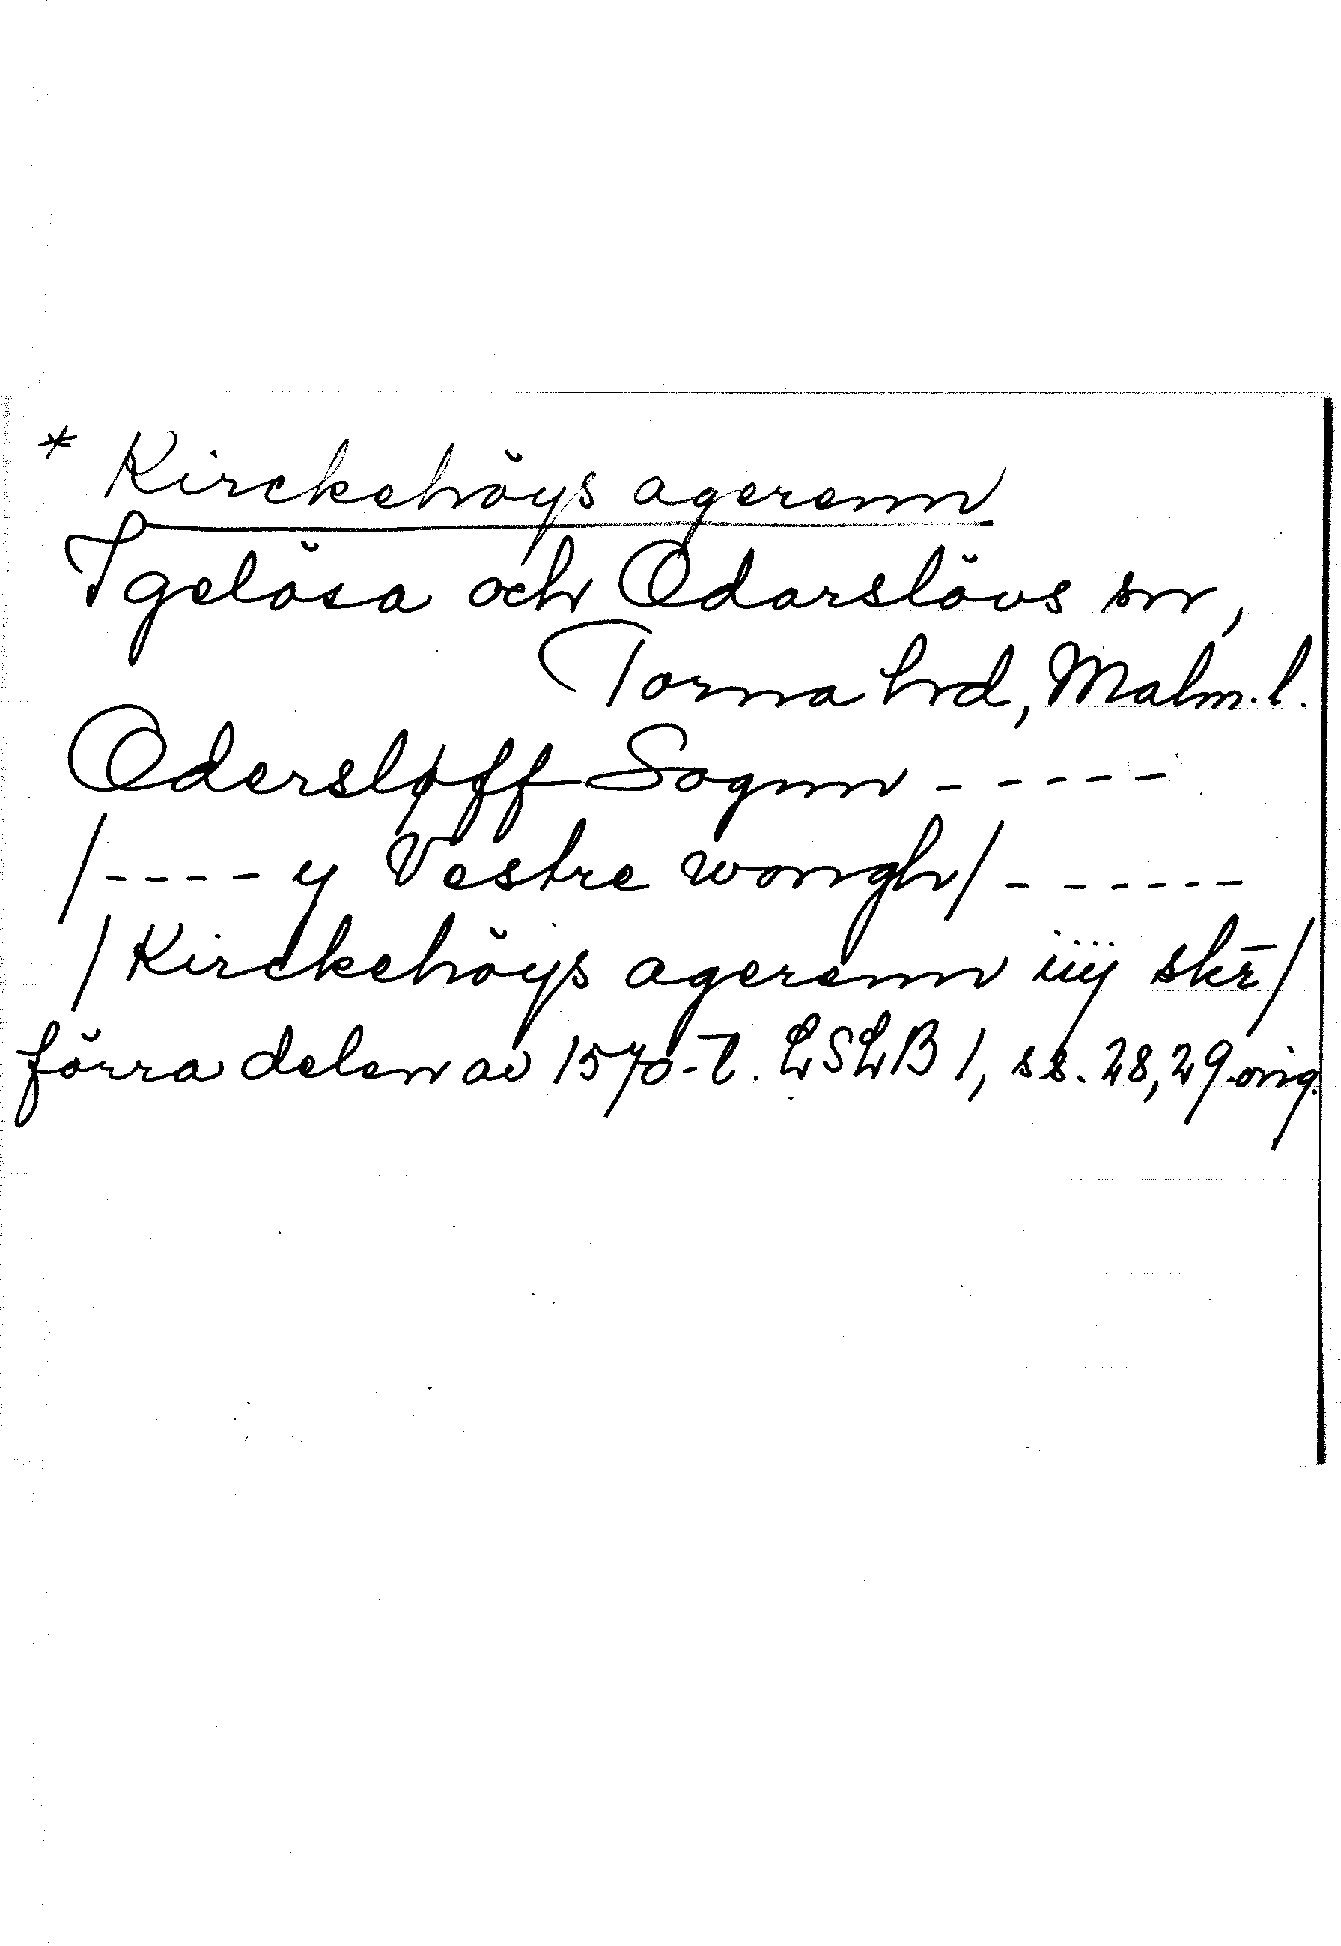 * Kirckehöys agerenn
Igelösa och Odarslövs snr,
Torna hrd, Malm. l.
Odersløff Sognn - - - - -
/ - - - - y Vestre wongh / - - - - - -
/ Kirckehöys agerenn iiij skr̄ /
förra delen av 1570-t. LSLB 1, ss. 28, 29 orig.